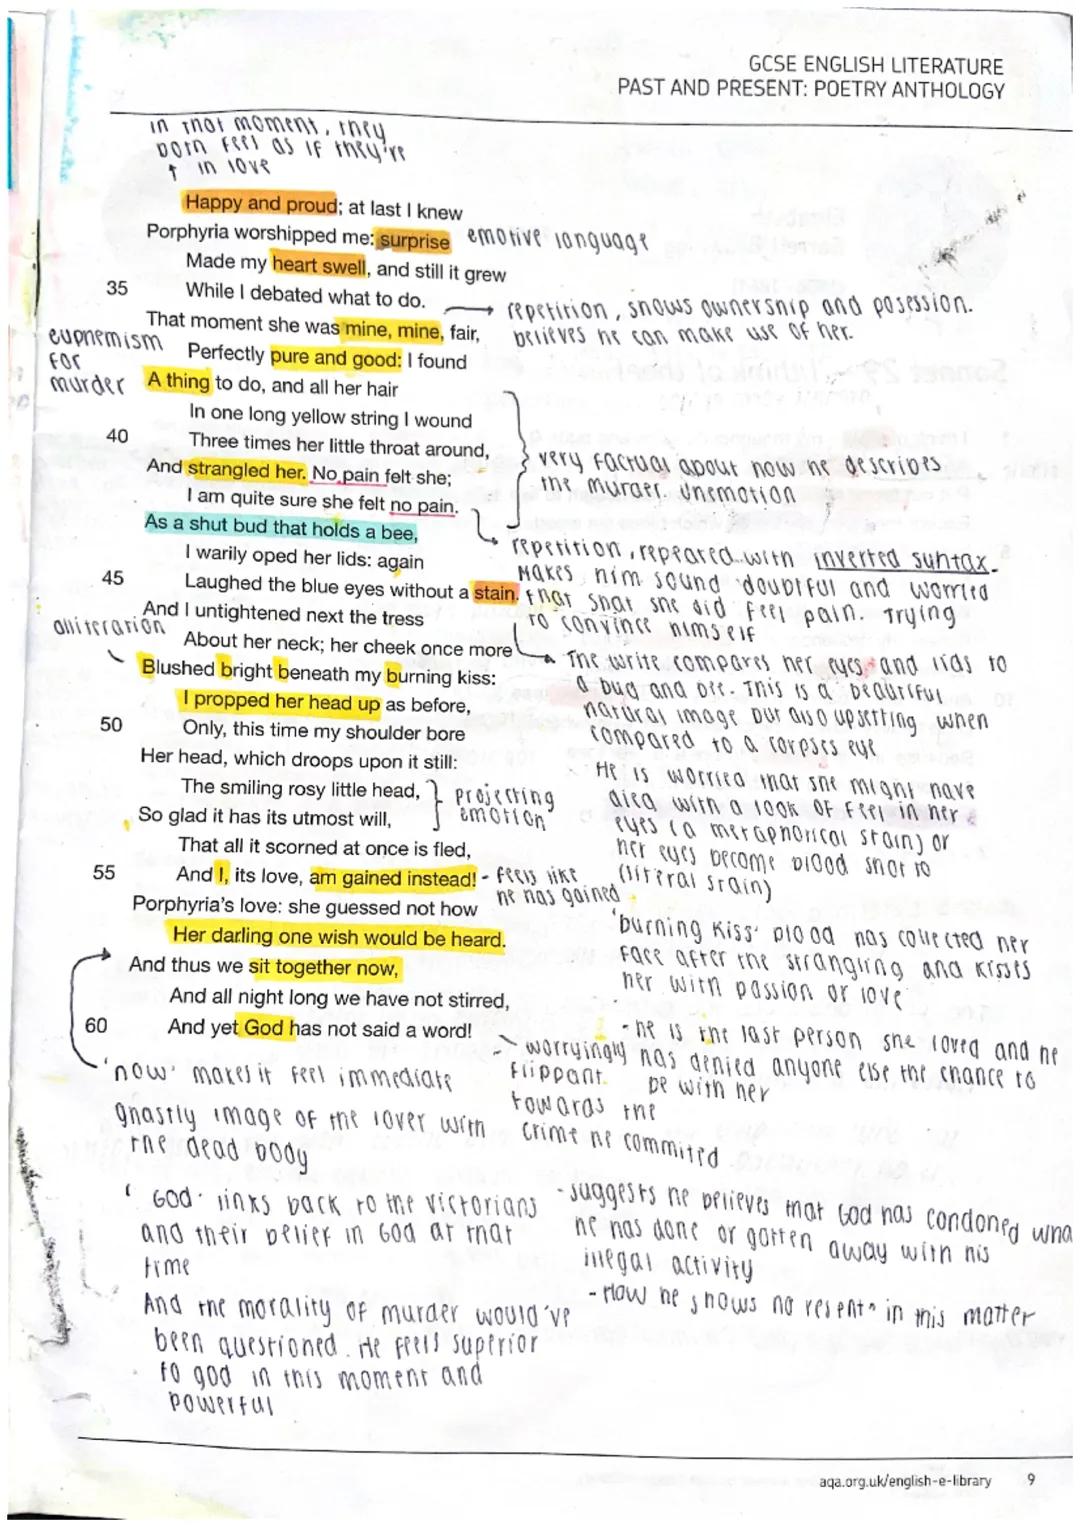 GCSE ENGLISH LITERATURE
PAST AND PRESENT: POETRY ANTHOLOGY
in that moment, they
both feel as if they're
↑ in love
Happy and proud; at last I knew
Porphyria worshipped me: surprise emotive language
Made my heart swell, and still it grew
35 While I debated what to do. → repetition, shows ownership and posession.
believes he can make use of her.
That moment she was mine, mine, fair,
euphemism
for
murder
Perfectly pure and good: I found
A thing to do, and all her hair
In one long yellow string I wound
40 Three times her little throat around,
And strangled her. No pain felt she;
I am quite sure she felt no pain.
very factual about how he describes
the murder. Unemotion
As a shut bud that holds a bee,
I warily oped her lids: again
45 Laughed the blue eyes without a stain.
repetition, repeated with inverted syntax.
Makes him sound doubtful and worried
that shat she did feel pain. Trying
to convince himself
And I untightened next the tress
alliteration
About her neck; her cheek once more
Blushed bright beneath my burning kiss:
I propped her head up as before,
50 Only, this time my shoulder bore
The write compares her eyes and lids to
a bud and bee. This is a beautiful
natural image but also upsetting when
compared to a corpses eye
Her head, which droops upon it still:
The smiling rosy little head,
So glad it has its utmost will,
projecting
emotion
That all it scorned at once is fled,
55 And I, its love, am gained instead! - feels like
he has gained
He is worried that she might have
died with a look of feel in her
eyes (a metaphorical stain) or
her eyes become blood shot to
(literal stain)
Porphyria's love: she guessed not how
Her darling one wish would be heard.
And thus we sit together now,
And all night long we have not stirred,
60 And yet God has not said a word!
'burning kiss' blood has collected her
face after the strangling and kisses
her with passion or love
- he is the last person she loved and he
has denied anyone else the chance to
be with her
worryingly
flippant
towards the
crime he commited
'now' makes it feel immediate
ghastly image of the lover with
the dead body
'God' links back to the Victorians
and their belief in God at that
time
And the morality of murder would've
been questioned. He feels superior
to god in this moment and
powerful
- suggests he believes that God has condoned wha
he has done or gotten away with his
illegal activity
- How he shows no resent in this matter
aqa.org.uk/english-e-library 9